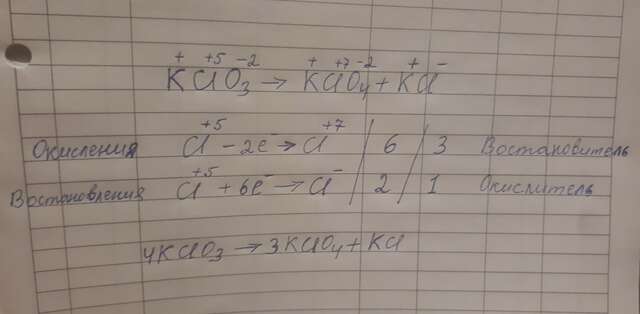 + +5 -2 + +7 -2 + -
KClO₃ → KClO₄ + KCl
+5 +7
Окисления Cl - 2e⁻ → Cl / 6 / 3 Востановитель
+5
Востановления Cl + 6e⁻ → Cl⁻ / 2 / 1 Окислитель
4KClO₃ → 3KClO₄ + KCl